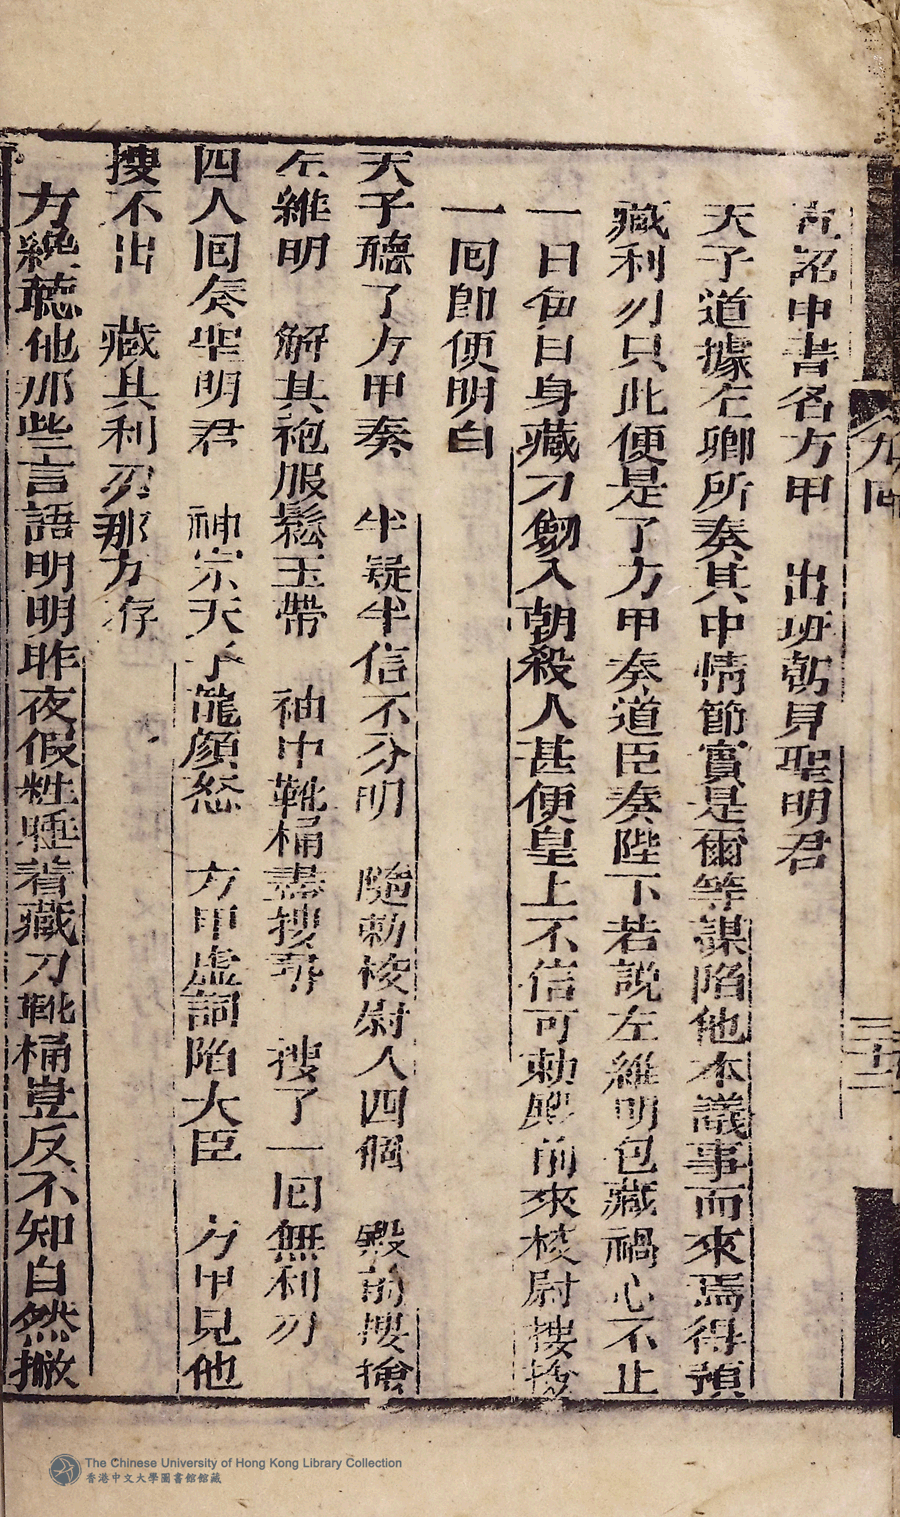 九回
三十二
詔中書名方甲　出班朝見聖明君
天子道據左卿所奏其中情節實是爾等謀陷他本議事而來焉得預
藏利刃只此便是了方甲奏道臣奏陛下若說左維明包藏禍心不止
一日每日身藏刀劒入朝殺人甚便皇上不信可勅殿前來校尉搜撿
一囘即便明白
天子聽了方甲奏　半疑半信不分明　隨勅校尉人四個　殿前摟撿
左維明　解其袍服鬆玉帶　袖中靴桶盡搜尋　搜了一囘無利刃
四人囘奏聖明君　神宗天子龍顏怒　方甲虛詞陷大臣　方甲見他
搜不出　藏其利刃那方存
方纔聽他那些言語明明昨夜假粧睡着藏刀靴桶豈反不知自然撇
The Chinese University of Hong Kong Library Collection
香港中文大學圖書館館藏